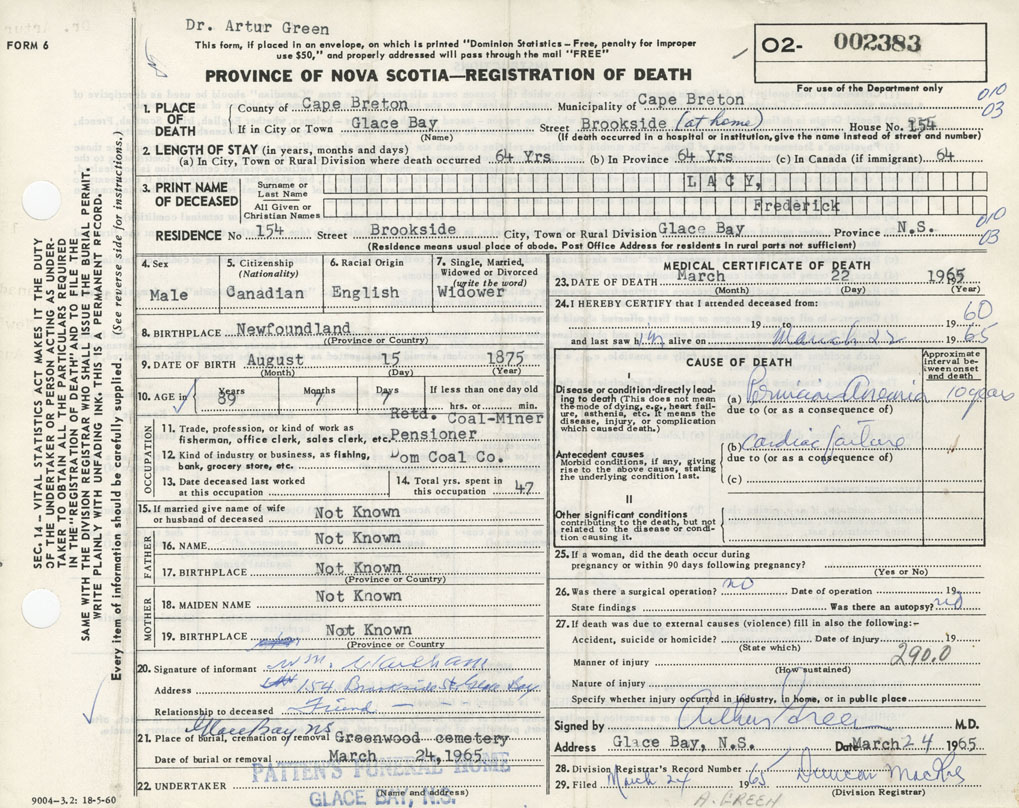 Dr. Artur Green
FORM 6
This form, if placed in an envelope, on which is printed "Dominion Statistics – Free, penalty for improper
use $50," and properly addressed will pass through the mail "FREE"
PROVINCE OF NOVA SCOTIA—REGISTRATION OF DEATH
O2- 002383
For use of the Department only
010
03
1. PLACE OF DEATH
County of Cape Breton Municipality of Cape Breton
If in City or Town Glace Bay Street Brookside (at home) House No. 154
(Name) (If death occurred in a hospital or institution, give the name instead of street and number)
2. LENGTH OF STAY (in years, months and days)
(a) In City, Town or Rural Division where death occurred 64 Yrs (b) In Province 64 Yrs (c) In Canada (if immigrant) 64
3. PRINT NAME OF DECEASED
Surname or Last Name LACY,
All Given or Christian Names Frederick
RESIDENCE No 154 Street Brookside City, Town or Rural Division Glace Bay Province N.S.
(Residence means usual place of abode. Post Office Address for residents in rural parts not sufficient)
010
03
4. Sex
Male
5. Citizenship
(Nationality)
Canadian
6. Racial Origin
English
7. Single, Married,
Widowed or Divorced
(write the word)
Widower
8. BIRTHPLACE Newfoundland
(Province or Country)
9. DATE OF BIRTH August 15 1875
(Month) (Day) (Year)
10. AGE in Years Months Days If less than one day old
89 7 7 hrs. or min.
OCCUPATION
11. Trade, profession, or kind of work as
fisherman, office clerk, sales clerk, etc. Retd. Coal-Miner
Pensioner
12. Kind of industry or business, as fishing,
bank, grocery store, etc. Dom Coal Co.
13. Date deceased last worked
at this occupation
14. Total yrs. spent in
this occupation 47
15. If married give name of wife
or husband of deceased Not Known
FATHER
16. NAME Not Known
17. BIRTHPLACE Not Known
(Province or Country)
MOTHER
18. MAIDEN NAME Not Known
19. BIRTHPLACE Not Known
(Province or Country)
20. Signature of informant Wm.
Address 154 Brookside St Glace Bay
Relationship to deceased Friend
Glace Bay NS
21. Place of burial, cremation or removal Greenwood cemetery
Date of burial or removal March 24, 1965
PATTEN'S FUNERAL HOME
22. UNDERTAKER (Name and address)
GLACE BAY, N.S.
9004-3.2: 18-5-60
MEDICAL CERTIFICATE OF DEATH
23. DATE OF DEATH March 22 1965
(Month) (Day) (Year)
24. I HEREBY CERTIFY that I attended deceased from:
19 to 19 60
and last saw him alive on March 22 1965
CAUSE OF DEATH
Approximate
interval be-
tween onset
and death
I
Disease or condition directly lead-
ing to death (This does not mean
the mode of dying, e.g., heart fail-
ure, asthenia, etc. It means the
disease, injury, or complication
which caused death.)
(a) Pernicious Anemia 10 years
due to (or as a consequence of)
(b) Cardiac failure
due to (or as a consequence of)
(c)
Antecedent causes
Morbid conditions, if any, giving
rise to the above cause, stating
the underlying condition last.
II
Other significant conditions
contributing to the death, but not
related to the disease or condi-
tion causing it.
25. If a woman, did the death occur during
pregnancy or within 90 days following pregnancy?
(Yes or No)
26. Was there a surgical operation? no Date of operation 19
State findings Was there an autopsy? no
27. If death was due to external causes (violence) fill in also the following:–
Accident, suicide or homicide? Date of injury 19
(State which)
290.0
Manner of injury
(How sustained)
Nature of injury
Specify whether injury occurred in industry, in home, or in public place
Signed by Arthur Green M.D.
Address Glace Bay, N.S. Date March 24 1965
28. Division Registrar's Record Number
29. Filed March 24 1965 Duncan
(Division Registrar)
A. GREEN
SEC. 14 – VITAL STATISTICS ACT MAKES IT THE DUTY
OF THE UNDERTAKER OR PERSON ACTING AS UNDER-
TAKER TO OBTAIN ALL THE PARTICULARS REQUIRED
IN THE "REGISTRATION OF DEATH" AND TO FILE THE
SAME WITH THE DIVISION REGISTRAR WHO SHALL ISSUE THE BURIAL PERMIT.
WRITE PLAINLY WITH UNFADING INK. THIS IS A PERMANENT RECORD.
Every item of information should be carefully supplied. (See reverse side for instructions.)